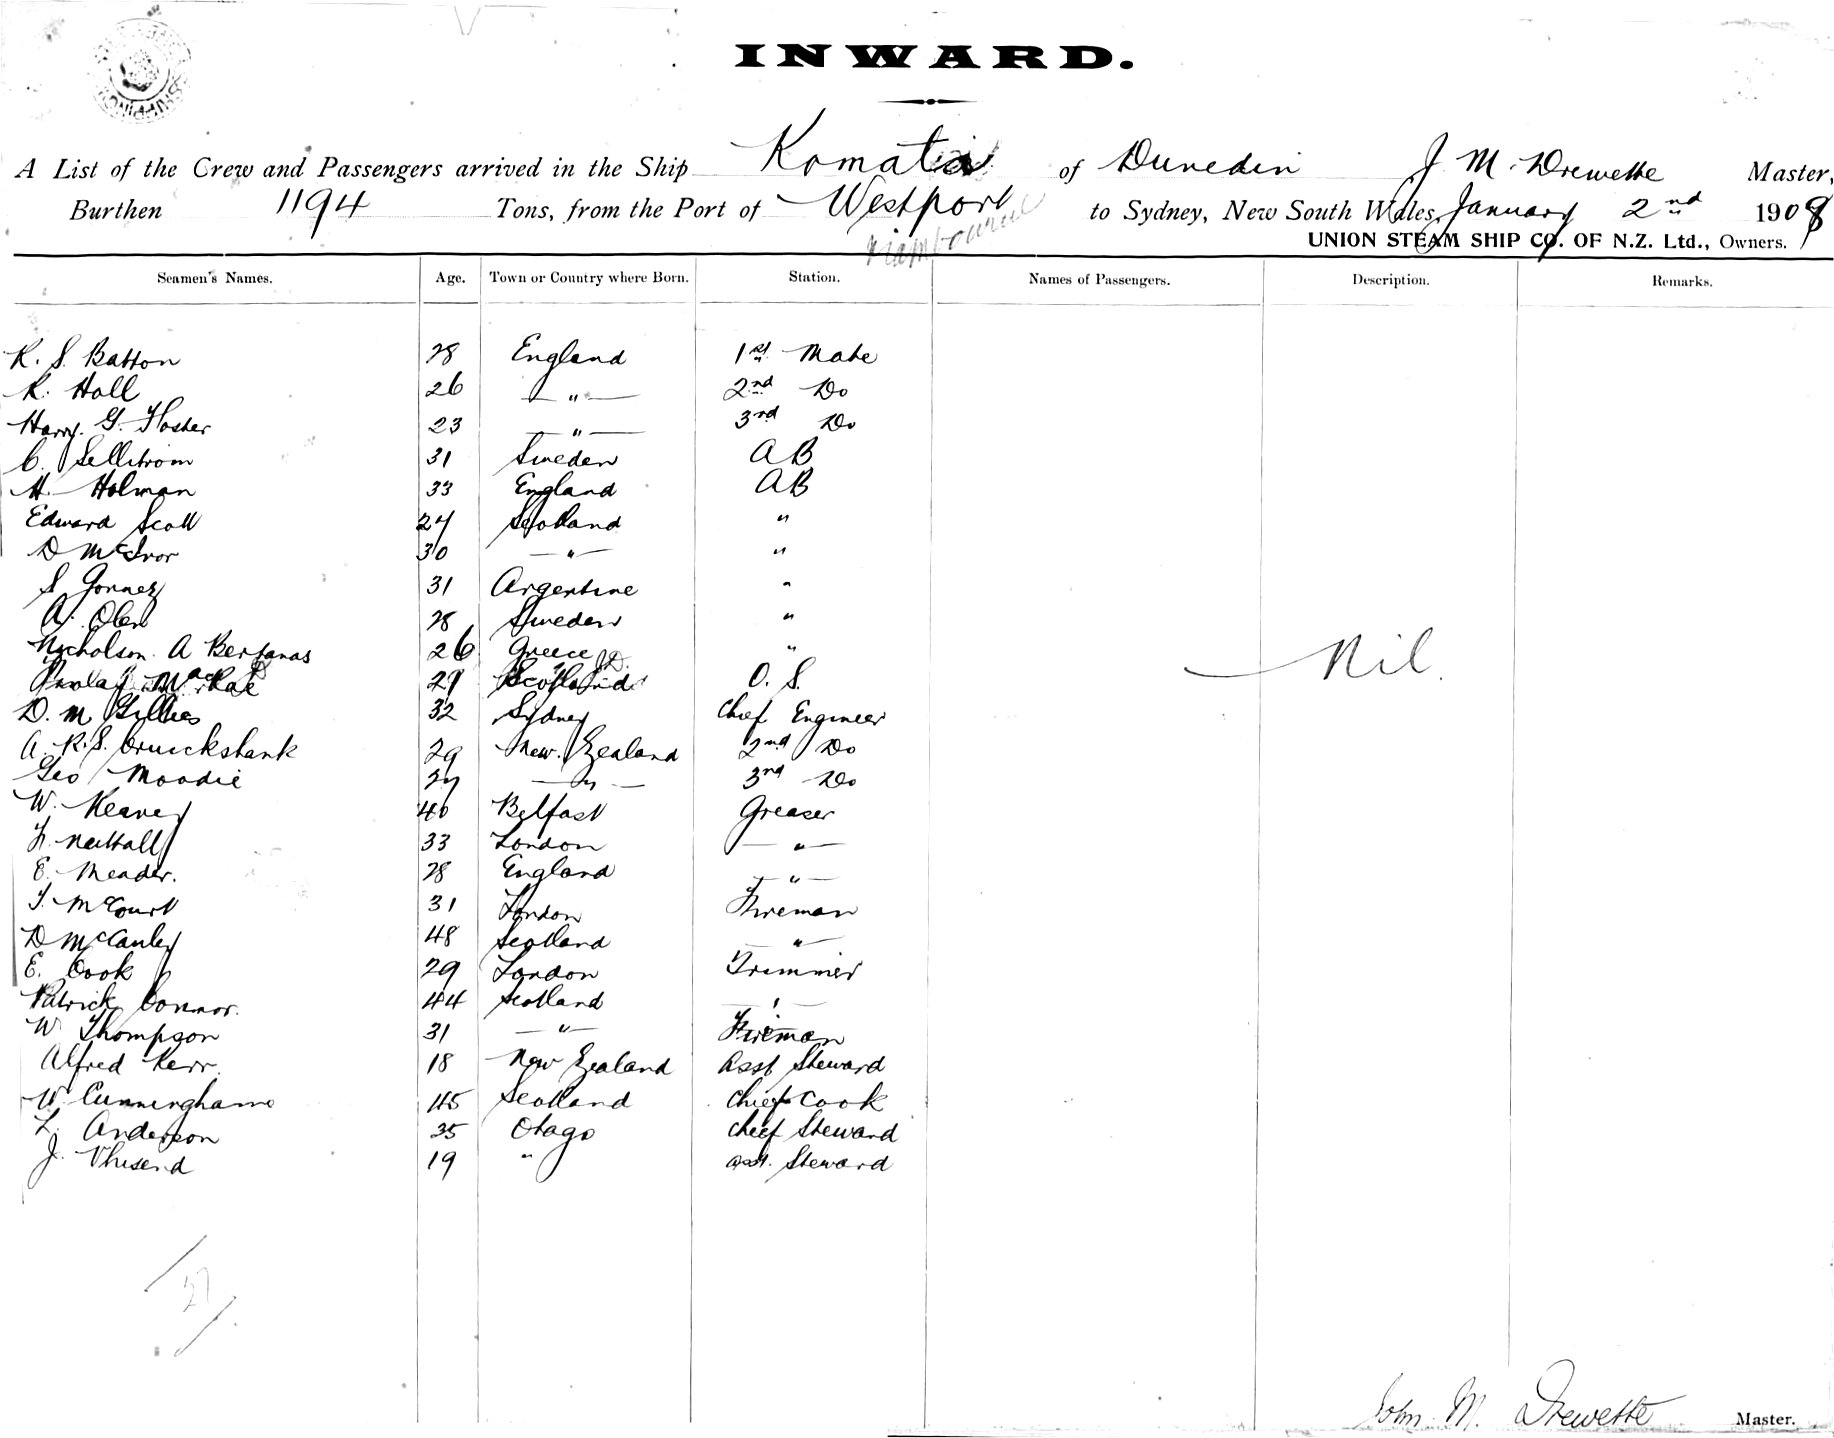 SHIPPING
INWARD.
A List of the Crew and Passengers arrived in the Ship Komata of Dunedin J. M. Drewette Master,
Burthen 1194 Tons, from the Port of Westport to Sydney, New South Wales, January 2nd 1908
UNION STEAM SHIP CO. OF N.Z. Ltd., Owners.
Seamen's Names. Age. Town or Country where Born. Station. Names of Passengers. Description. Remarks.
R. S. Batton 28 England 1st Mate
R. Hall 26 — " — 2nd Do
Harry. G. Foster 23 — " — 3rd Do
C. Sellstrom 31 Sweden AB
H. Holman 33 England AB
Edward Scott 24 Scotland "
D McIvor 30 — " — "
S Gomez 31 Argentine "
A. Olen 28 Sweden "
Nicholson. A Bertanas 26 Greece "
MacRae 29 Scotland O. S.
Nil.
D. M Gillies 32 Sydney Chief Engineer
A. R. S. Cruickshank 29 New. Zealand 2nd Do
Geo Moodie 27 — " — 3rd Do
W. Keaney 40 Belfast Greaser
F. Nuttall 33 London — " —
E. Meader. 28 England — " —
T. McCourt 31 London Fireman
D McCauley 48 Scotland — " —
E. Cook 29 London Trimmer
Patrick Connor. 44 Scotland — " —
W. Thompson 31 — " — Fireman
Alfred Kerr. 18 New Zealand Asst Steward
W. Cunninghame 45 Scotland Chief Cook
L. Anderson 35 Otago Cheef Steward
J. 19 " asst. Steward
27
John M. Drewette Master.